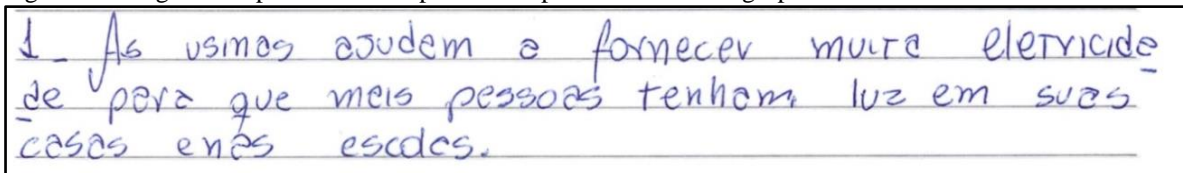 1_ As usinas ajudam a fornecer muita eletricida
de para que mais pessoas tenham luz em suas
casas enas escolas.